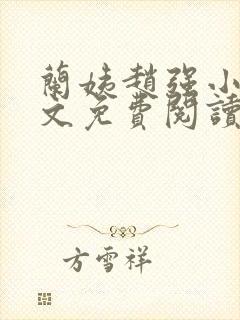 蘭姨趙強小
文免費閱讀
方雪祥